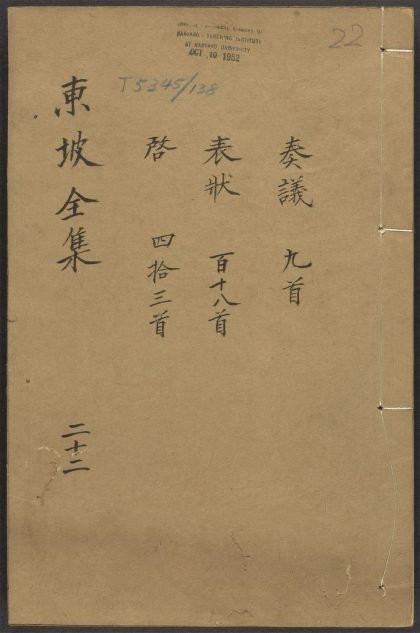 22
HARVARD-YENCHING INSTITUTE
AT HARVARD UNIVERSITY
OCT 10 1952
T5345/138
奏議 九首
表狀 百十八首
啓 四拾三首
東坡全集 二十二